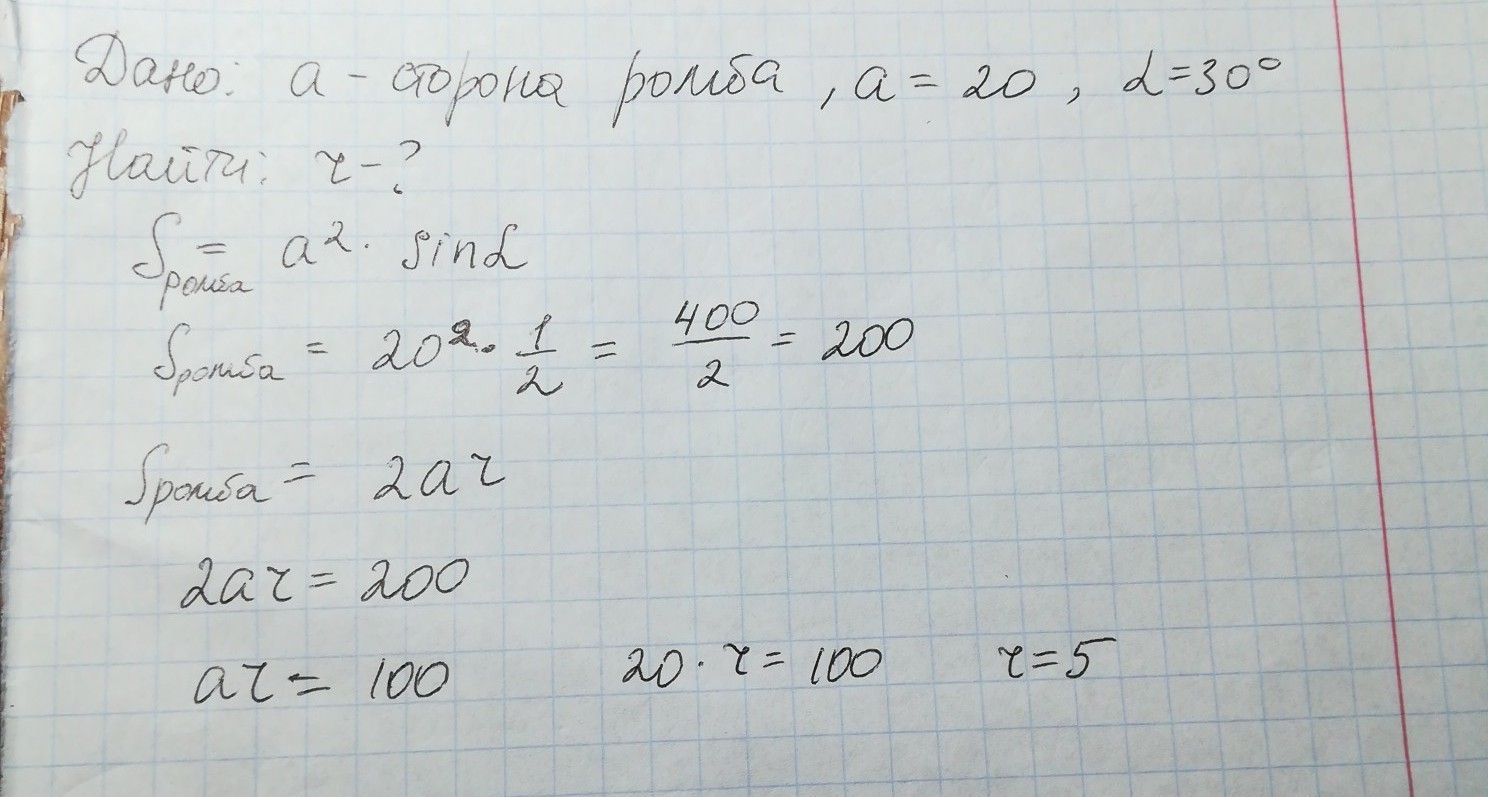 Дано: a - сторона ромба, a = 20, α=30°
Найти: r - ?
Sромба = a² · sinα
Sромба = 20² · 1/2 = 400/2 = 200
Sромба = 2ar
2ar = 200
ar = 100 20 · r = 100 r = 5